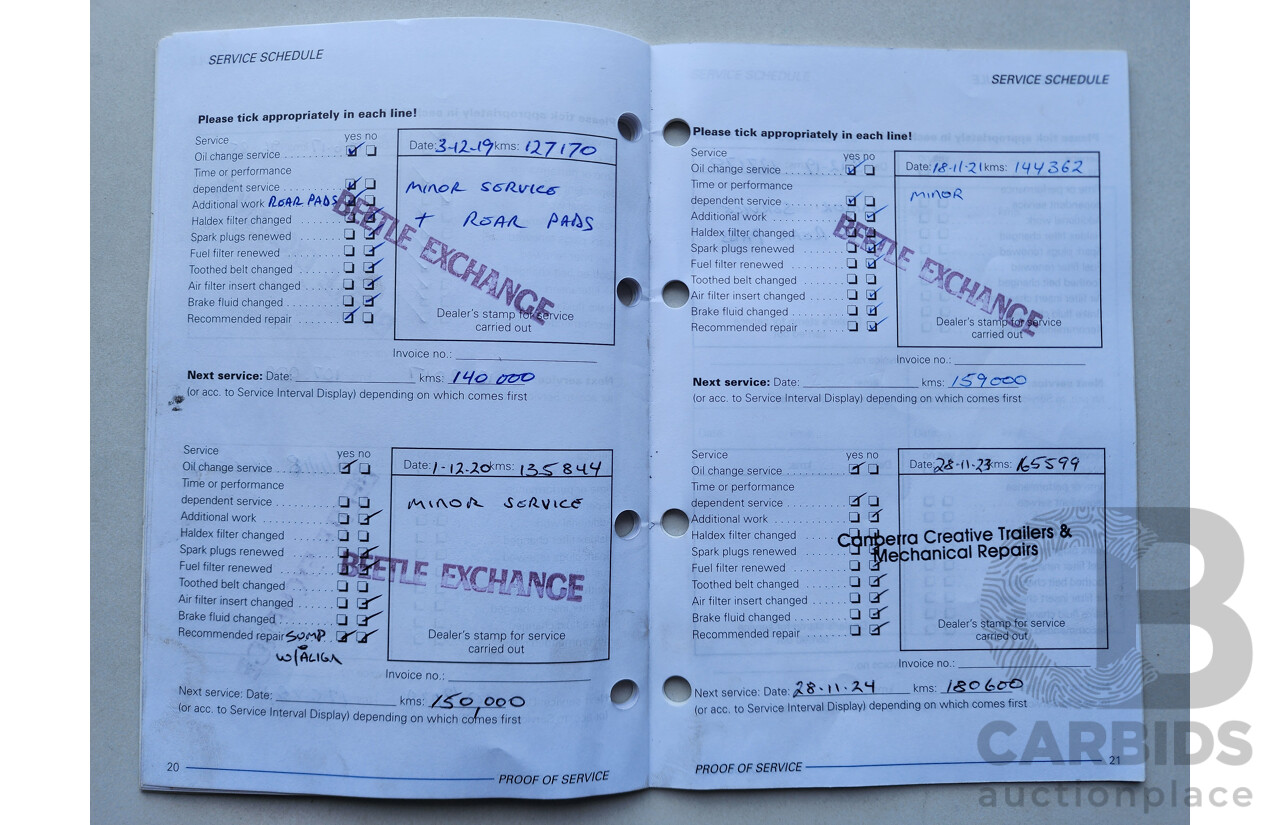 SERVICE SCHEDULE
Please tick appropriately in each line!
Service yes no
Oil change service
Time or performance
dependent service
Additional work REAR PADS
Haldex filter changed
Spark plugs renewed
Fuel filter renewed
Toothed belt changed
Air filter insert changed
Brake fluid changed
Recommended repair
Date: 3-12-19 kms: 127170
MINOR SERVICE
+ REAR PADS
BEETLE EXCHANGE
Dealer's stamp for service
carried out
Invoice no.:
Next service: Date: kms: 140 000
(or acc. to Service Interval Display) depending on which comes first
Service yes no
Oil change service
Time or performance
dependent service
Additional work
Haldex filter changed
Spark plugs renewed
Fuel filter renewed
Toothed belt changed
Air filter insert changed
Brake fluid changed
Recommended repair SUMP
W/ALIGN
Date: 1-12-20 kms: 135844
MINOR SERVICE
BEETLE EXCHANGE
Dealer's stamp for service
carried out
Invoice no.:
Next service: Date: kms: 150,000
(or acc. to Service Interval Display) depending on which comes first
20 PROOF OF SERVICE
SERVICE SCHEDULE
Please tick appropriately in each line!
Service yes no
Oil change service
Time or performance
dependent service
Additional work
Haldex filter changed
Spark plugs renewed
Fuel filter renewed
Toothed belt changed
Air filter insert changed
Brake fluid changed
Recommended repair
Date: 18-11-21 kms: 144362
MINOR
BEETLE EXCHANGE
Dealer's stamp for service
carried out
Invoice no.:
Next service: Date: kms: 159000
(or acc. to Service Interval Display) depending on which comes first
Service yes no
Oil change service
Time or performance
dependent service
Additional work
Haldex filter changed
Spark plugs renewed
Fuel filter renewed
Toothed belt changed
Air filter insert changed
Brake fluid changed
Recommended repair
Date: 28-11-23 kms: 165599
Canberra Creative Trailers &
Mechanical Repairs
Dealer's stamp for service
carried out
Invoice no.:
Next service: Date: 28-11-24 kms: 180600
(or acc. to Service Interval Display) depending on which comes first
PROOF OF SERVICE 21
CB
CARBIDS
auctionplace